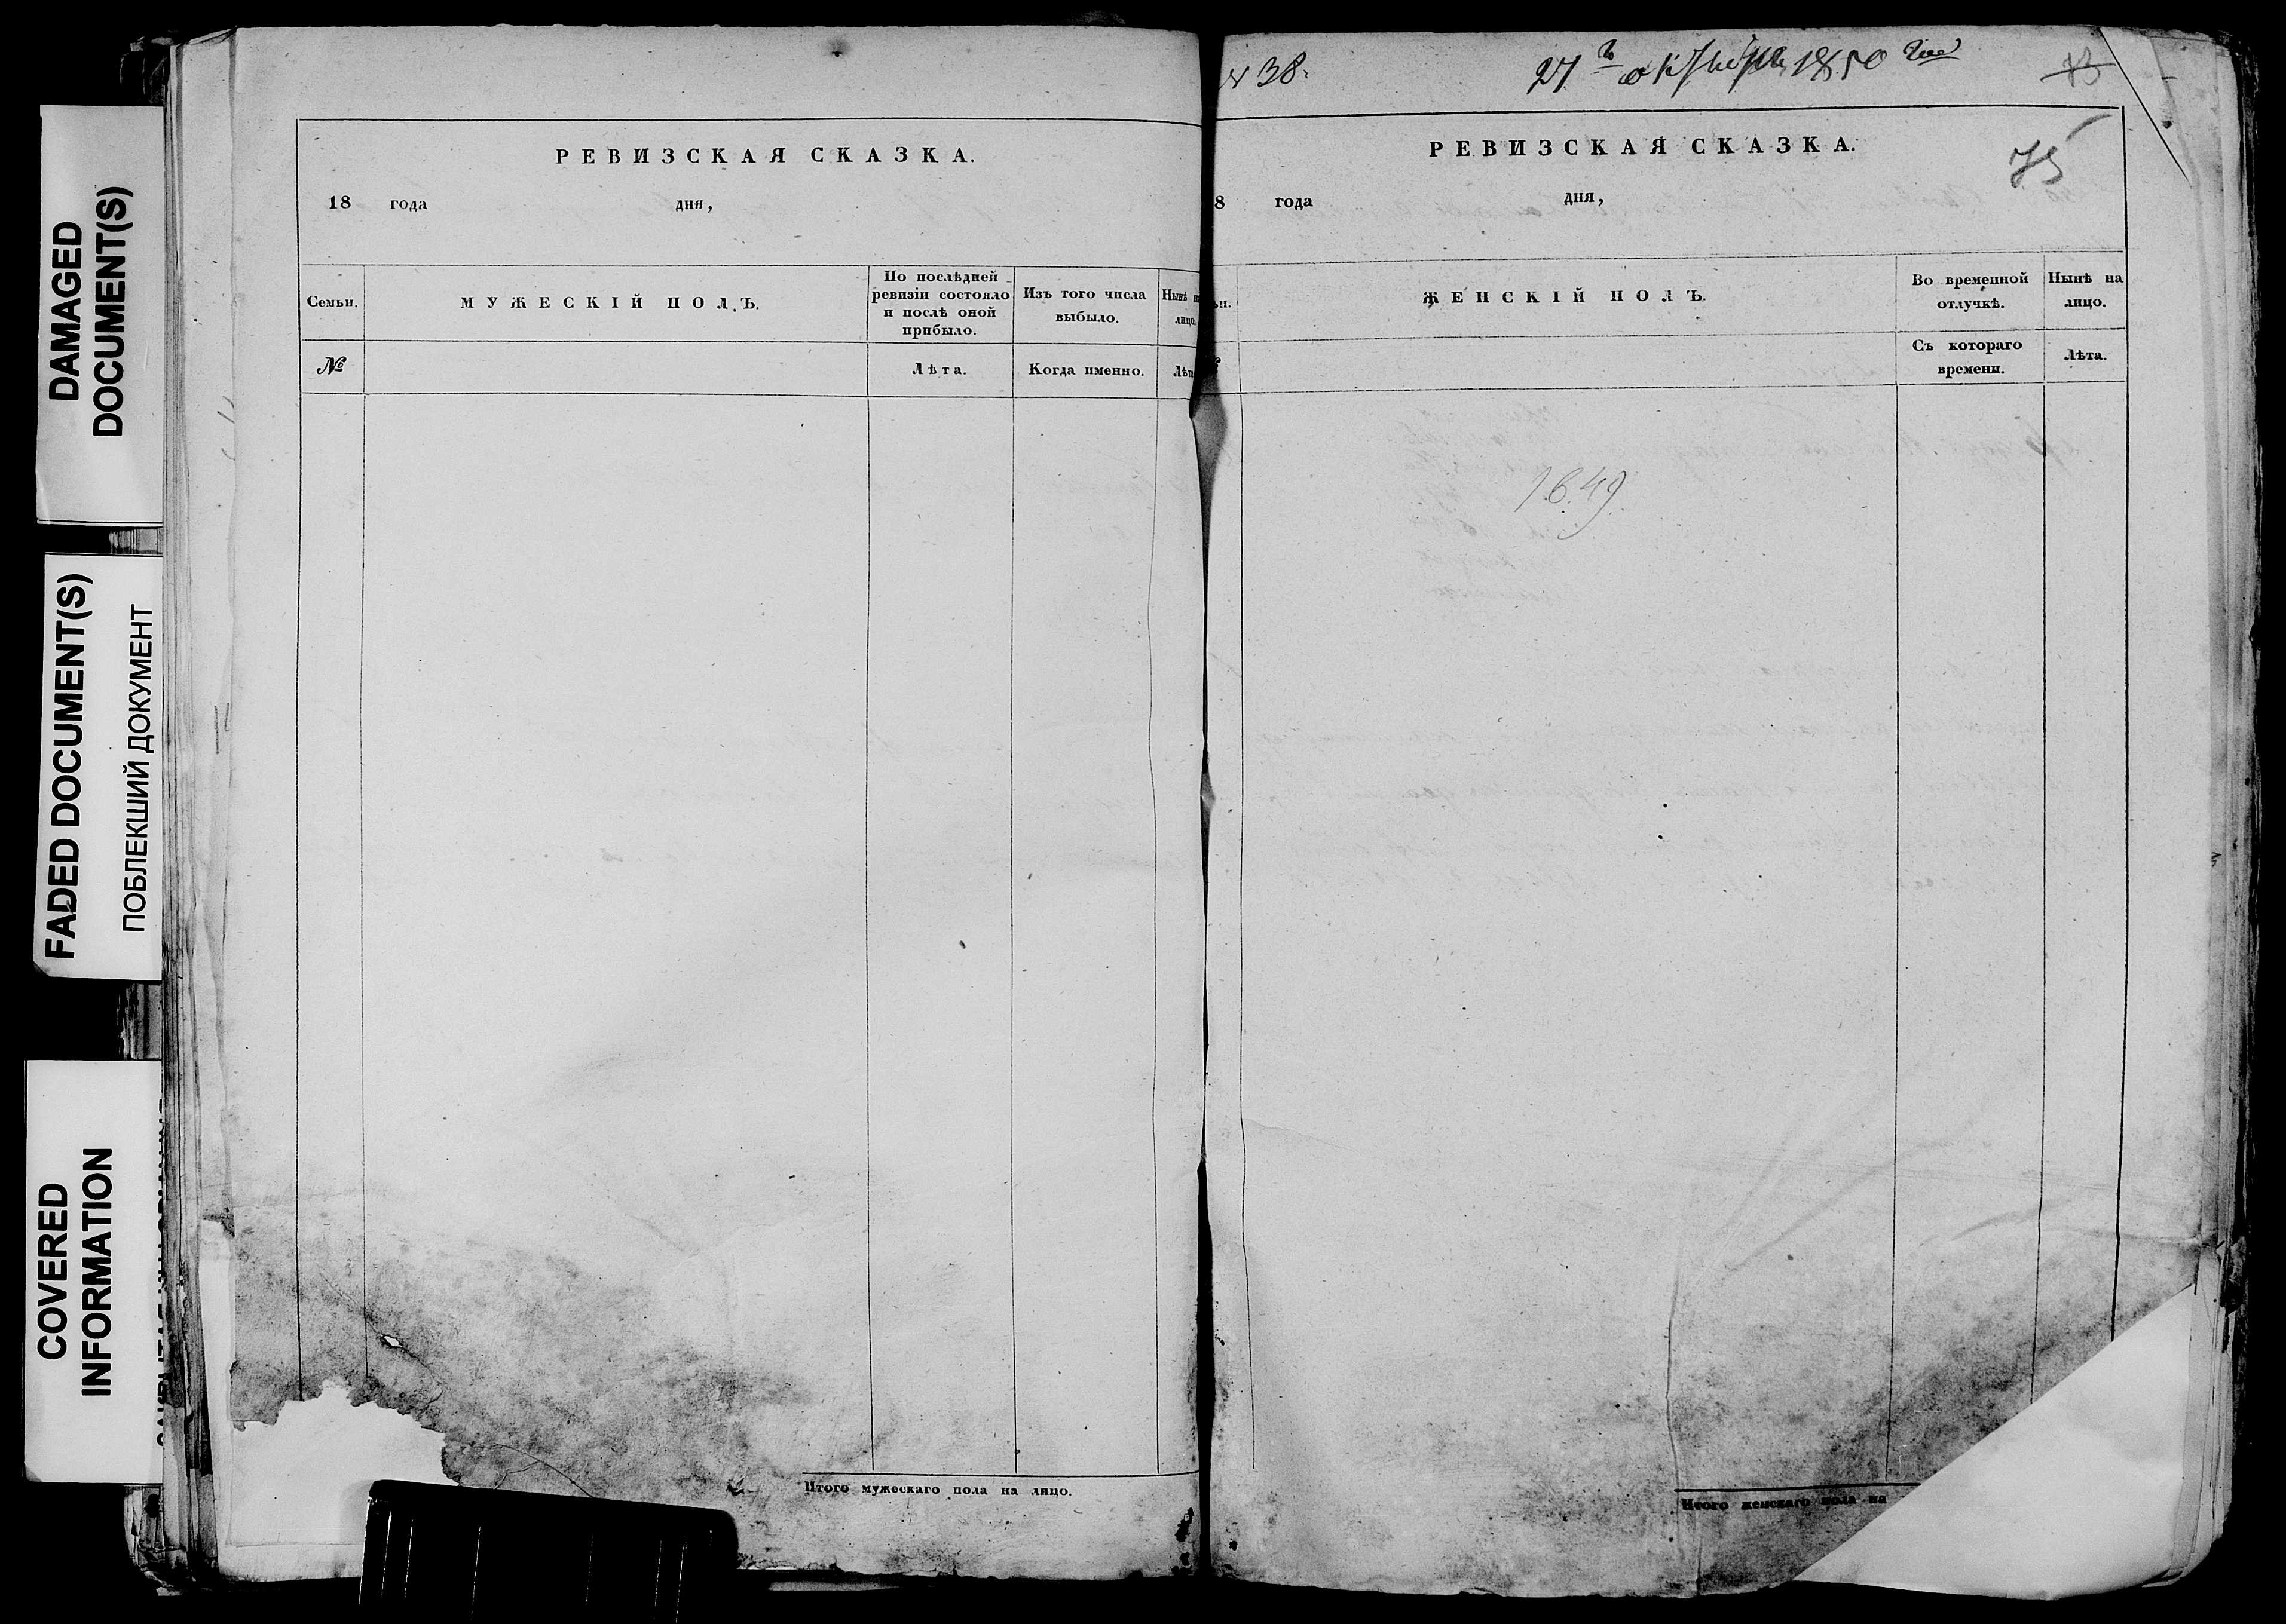 DAMAGED
DOCUMENT(S)
FADED DOCUMENT(S)
ПОБЛЕКШИЙ ДОКУМЕНТ
COVERED
INFORMATION
РЕВИЗСКАЯ СКАЗКА.
18 года дня,
Семьи.
МУЖЕСКІЙ ПОЛЪ.
По послѣдней
ревизіи состояло
и послѣ оной
прибыло.
Изъ того числа
выбыло.
Нынѣ на
лицо.
№
Лѣта.
Когда именно.
Лѣта
Итого мужескаго пола на лицо.
№ 38. 27 октября 1850 года
43
РЕВИЗСКАЯ СКАЗКА.
75
8 года дня,
ьи.
ЖЕНСКІЙ ПОЛЪ.
Во временной
отлучкѣ.
Нынѣ на
лицо.
Съ котораго
времени.
Лѣта.
1649
Итого женскаго пола на